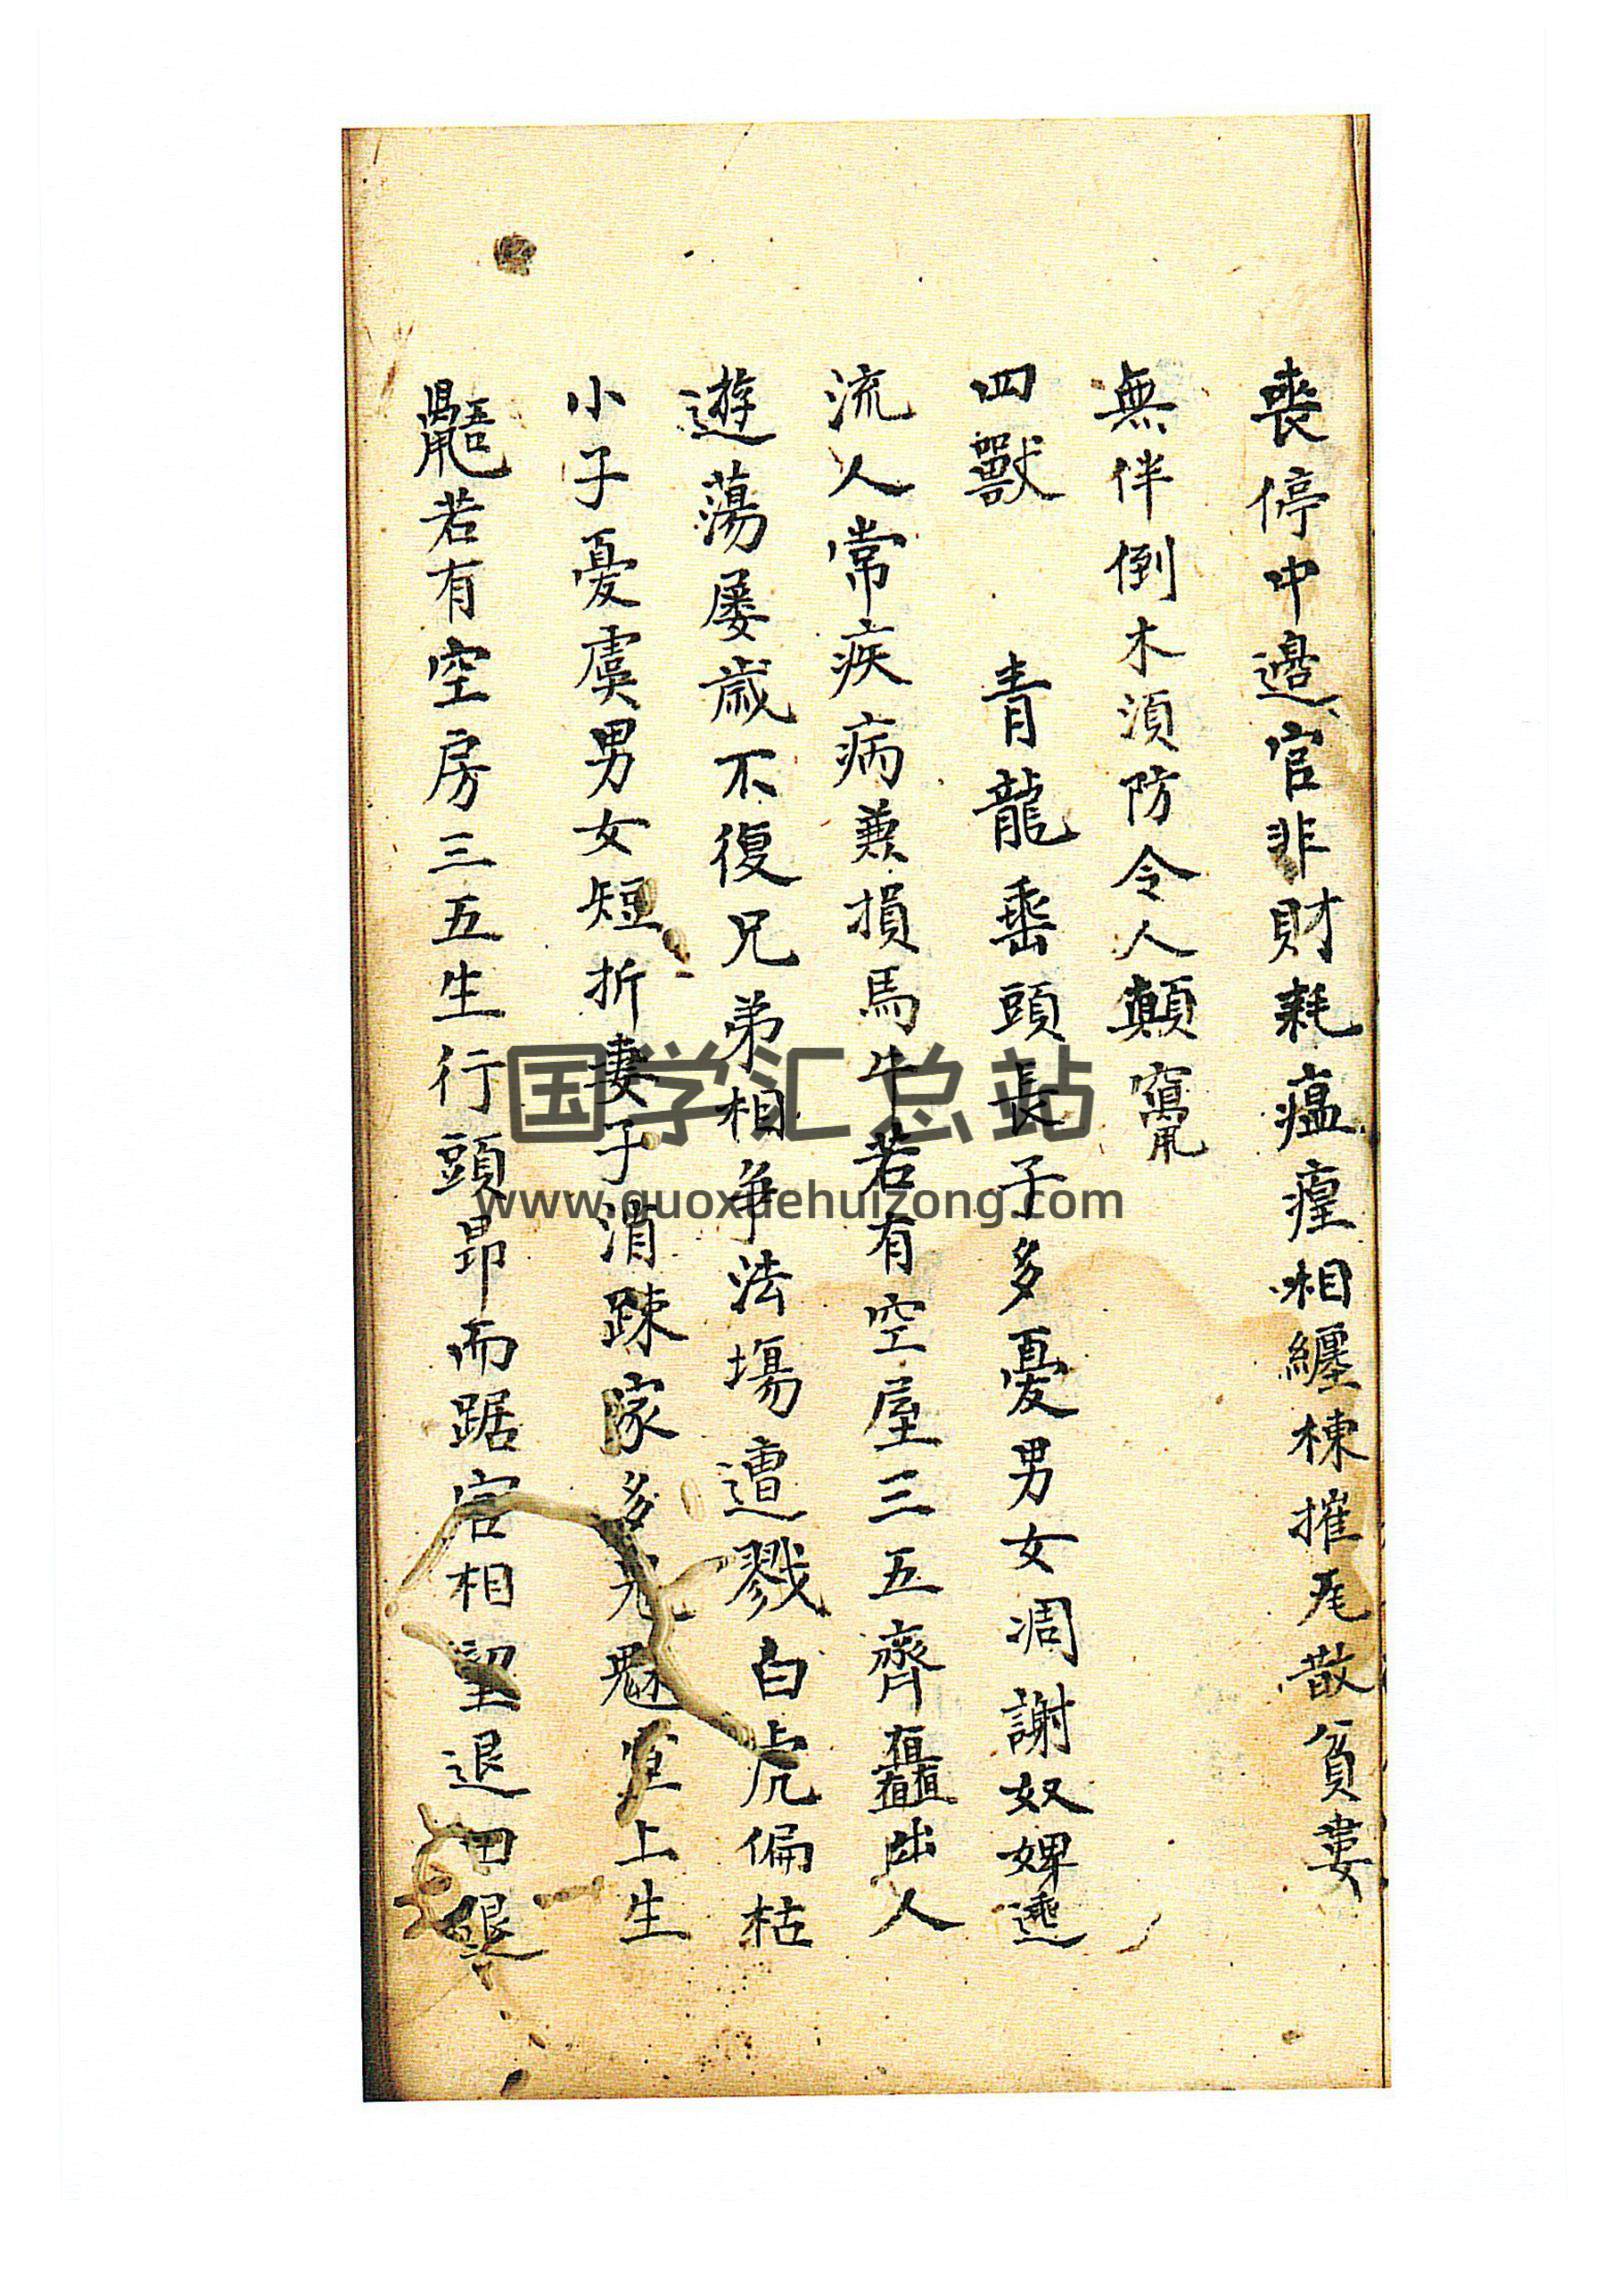 喪停中邊官非財耗瘟瘟相纏棟摧尾散貧妻
無伴倒木須防令人顛
四獸　青龍垂頭長子多憂男女凋謝奴婢遞
流人常疾病兼損馬牛若有空屋三五齊矗出人
遊蕩屢歲不復兄弟相爭法場遭戮白虎偏枯
小子憂虞男女短折妻子消疎家多鬼魅堂上生
若有空房三五生行頭昂而踞宮相望退田
国学汇总站
www.guoxuehuizong.com